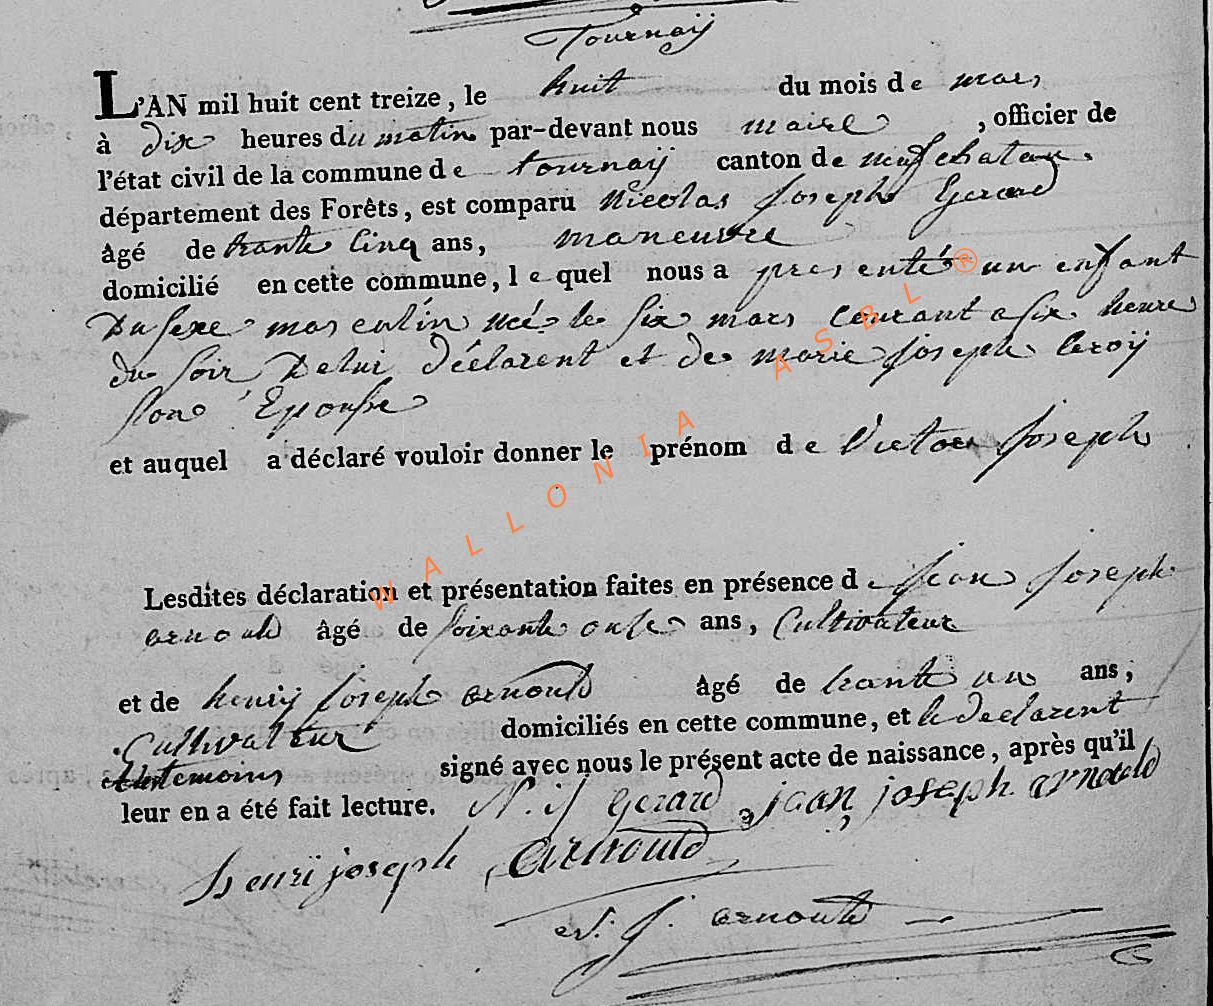 Tournaÿ
L'AN mil huit cent treize, le huit du mois de mars
à dix heures du matin par-devant nous maire, officier de
l'état civil de la commune de tournaÿ canton de neufchateau.
département des Forêts, est comparu Nicolas Joseph Gerard
âgé de trante Cinq ans, maneuvre
domicilié en cette commune, lequel nous a presenté un enfant
Du sexe masculin né le six mars Courant a six heure
du soir De lui déclarent et de marie Joseph leroÿ
son Epouse
et auquel a déclaré vouloir donner le prénom de Victor Joseph
Lesdites déclaration et présentation faites en présence de Jean Joseph
arnould âgé de soixante onse ans, Cultivateur
et de henrÿ Joseph arnould âgé de trante un ans,
Cultivateur domiciliés en cette commune, et le declarent
temoins signé avec nous le présent acte de naissance, après qu'il
leur en a été fait lecture. N. j Gerard jean joseph arnould
henri joseph arnould
J. arnould
WALLONIA ASBL®